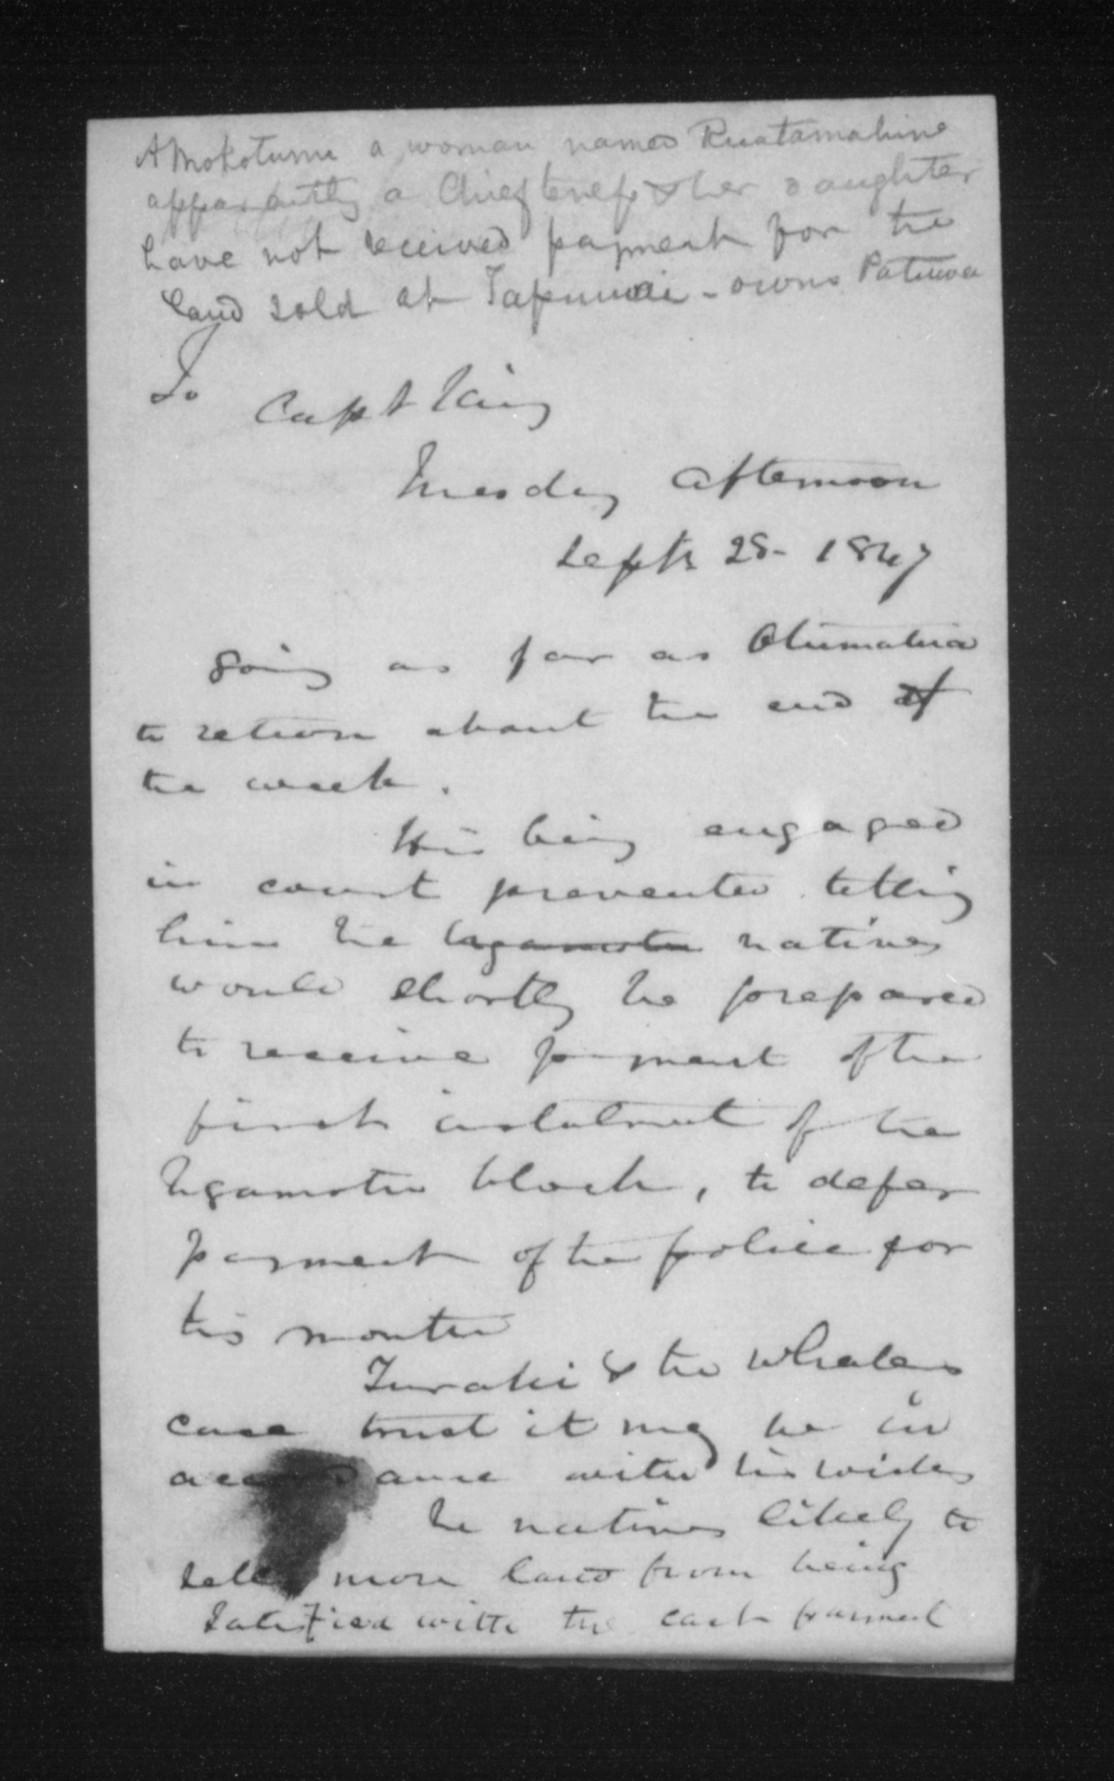 At Mokoturu a woman named Ruatamahine
apparently a Chieftness & her daughter
have not received payment for the
land sold at Tapuwae - owns Patuwa
To Capt King
Tuesday afternoon
Septr 28 - 1847
going as far as Otumatua
to return about the end of
the week.
His being engaged
in court prevented telling
him the Ngamotu natives
would shortly be prepared
to receive payment of the
first instalment of the
Ngamotu block, to defer
payment of the police for
this month
Turaki & the Whalers
case trust it may be in
accordance with his wishes
The natives likely to
sell more land from being
satisfied with the cash payment